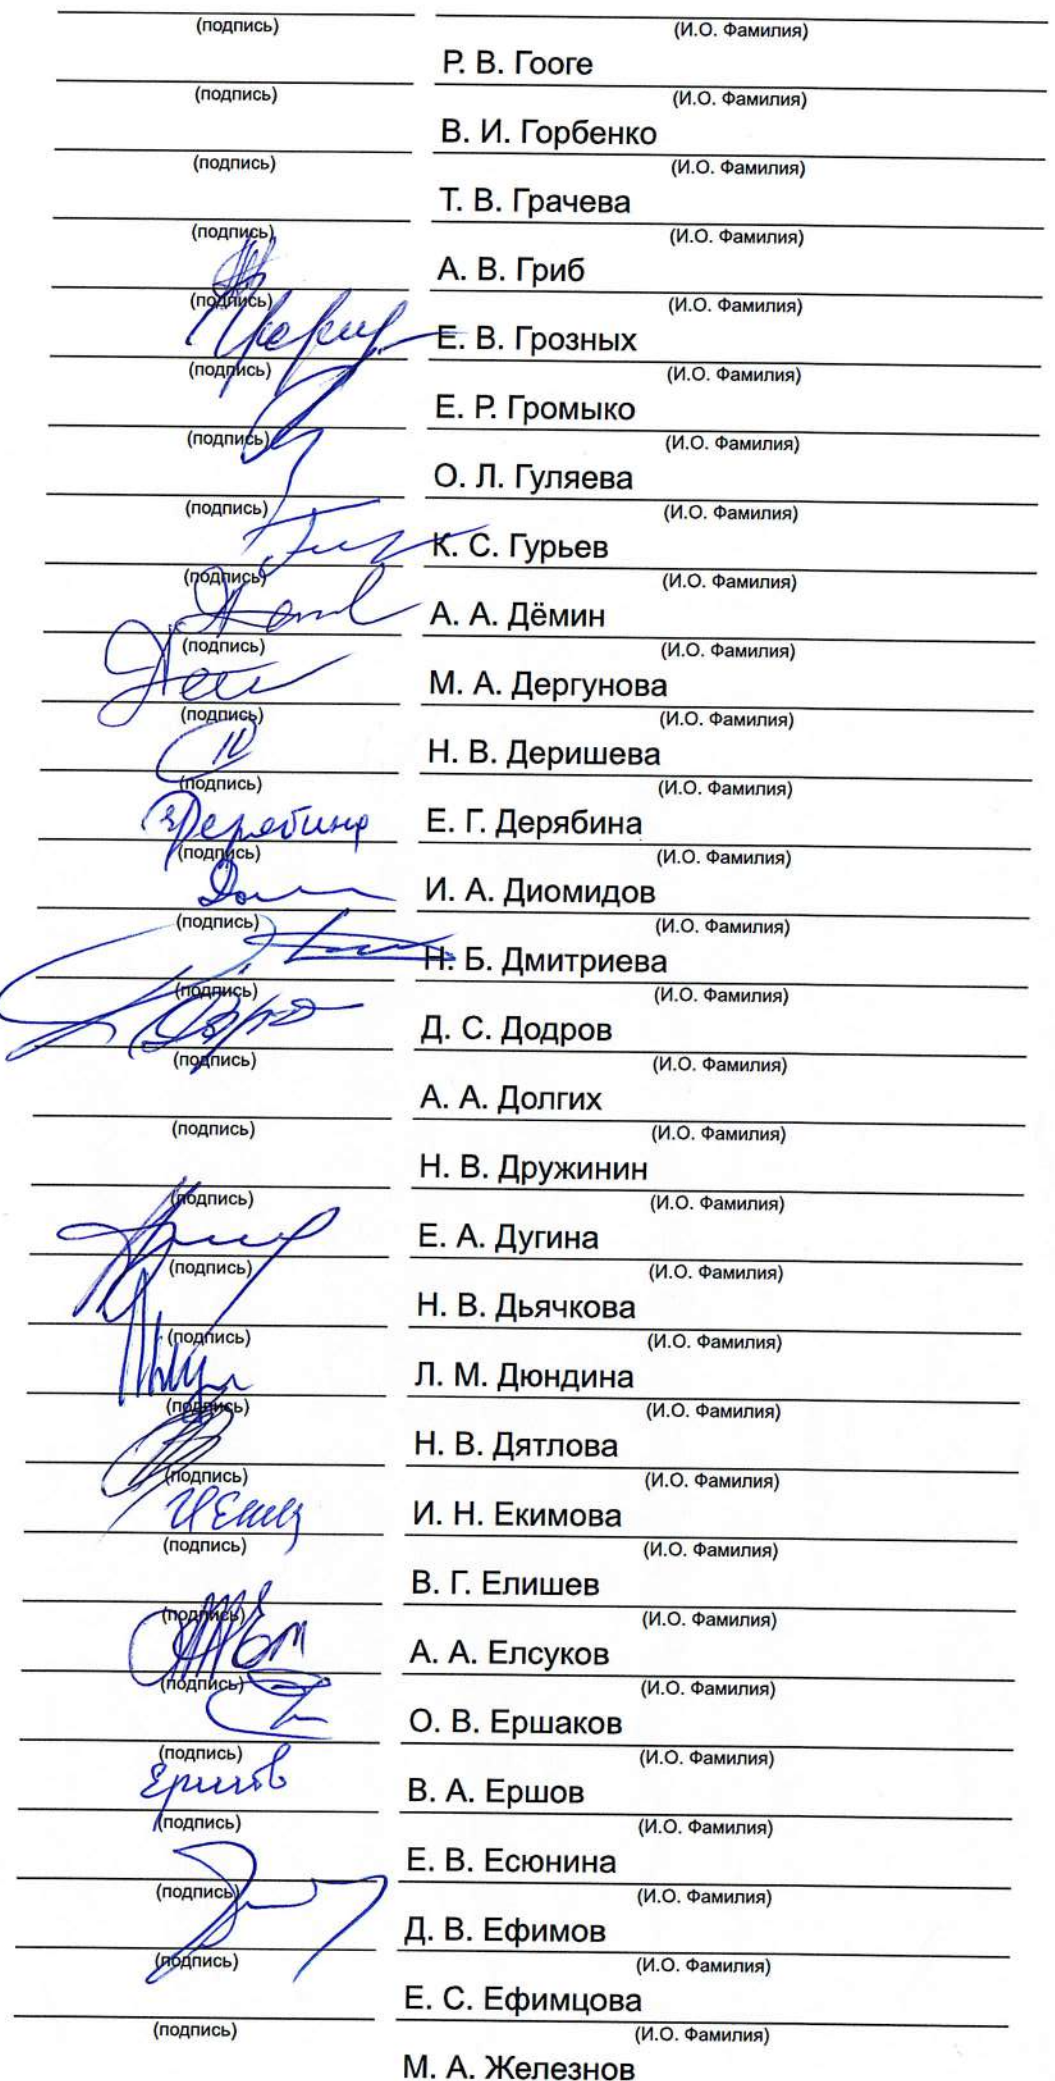 (подпись) (И.О. Фамилия)
Р. В. Гооге
(подпись) (И.О. Фамилия)
В. И. Горбенко
(подпись) (И.О. Фамилия)
Т. В. Грачева
(подпись) (И.О. Фамилия)
А. В. Гриб
(подпись) (И.О. Фамилия)
Е. В. Грозных
(подпись) (И.О. Фамилия)
Е. Р. Громыко
(подпись) (И.О. Фамилия)
О. Л. Гуляева
(подпись) (И.О. Фамилия)
К. С. Гурьев
(подпись) (И.О. Фамилия)
А. А. Дёмин
(подпись) (И.О. Фамилия)
М. А. Дергунова
(подпись) (И.О. Фамилия)
Н. В. Деришева
(подпись) (И.О. Фамилия)
Дерябина Е. Г. Дерябина
(подпись) (И.О. Фамилия)
И. А. Диомидов
(подпись) (И.О. Фамилия)
Н. Б. Дмитриева
(подпись) (И.О. Фамилия)
Д. С. Додров
(подпись) (И.О. Фамилия)
А. А. Долгих
(подпись) (И.О. Фамилия)
Н. В. Дружинин
(подпись) (И.О. Фамилия)
Е. А. Дугина
(подпись) (И.О. Фамилия)
Н. В. Дьячкова
(подпись) (И.О. Фамилия)
Л. М. Дюндина
(подпись) (И.О. Фамилия)
Н. В. Дятлова
(подпись) (И.О. Фамилия)
И. Н. Екимова
(подпись) (И.О. Фамилия)
В. Г. Елишев
(подпись) (И.О. Фамилия)
А. А. Елсуков
(подпись) (И.О. Фамилия)
О. В. Ершаков
(подпись) (И.О. Фамилия)
Ершов В. А. Ершов
(подпись) (И.О. Фамилия)
Е. В. Есюнина
(подпись) (И.О. Фамилия)
Д. В. Ефимов
(подпись) (И.О. Фамилия)
Е. С. Ефимцова
(подпись) (И.О. Фамилия)
М. А. Железнов